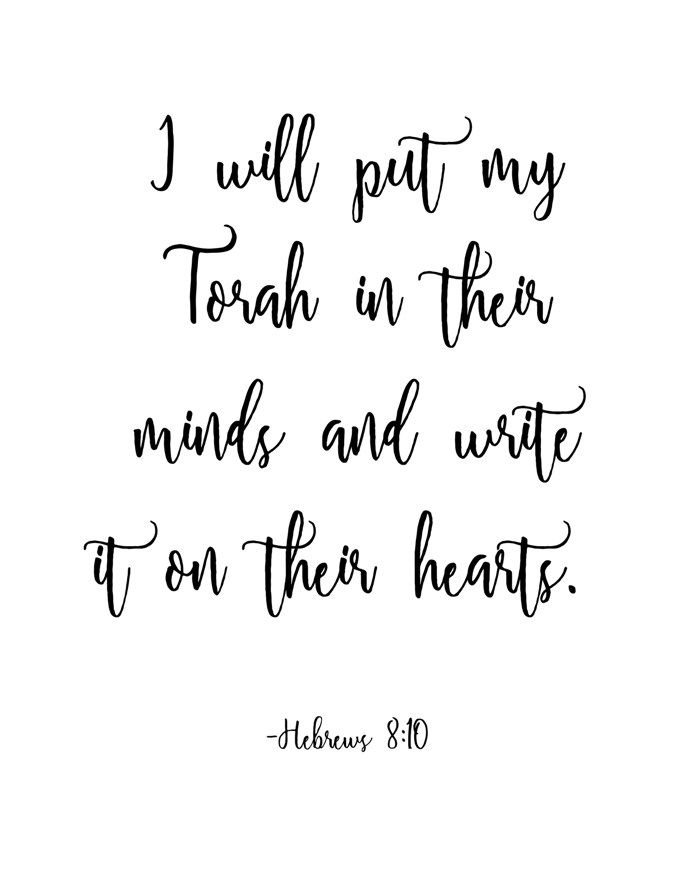 I will put my
Torah in their
minds and write
it on their hearts.
-Hebrews 8:10